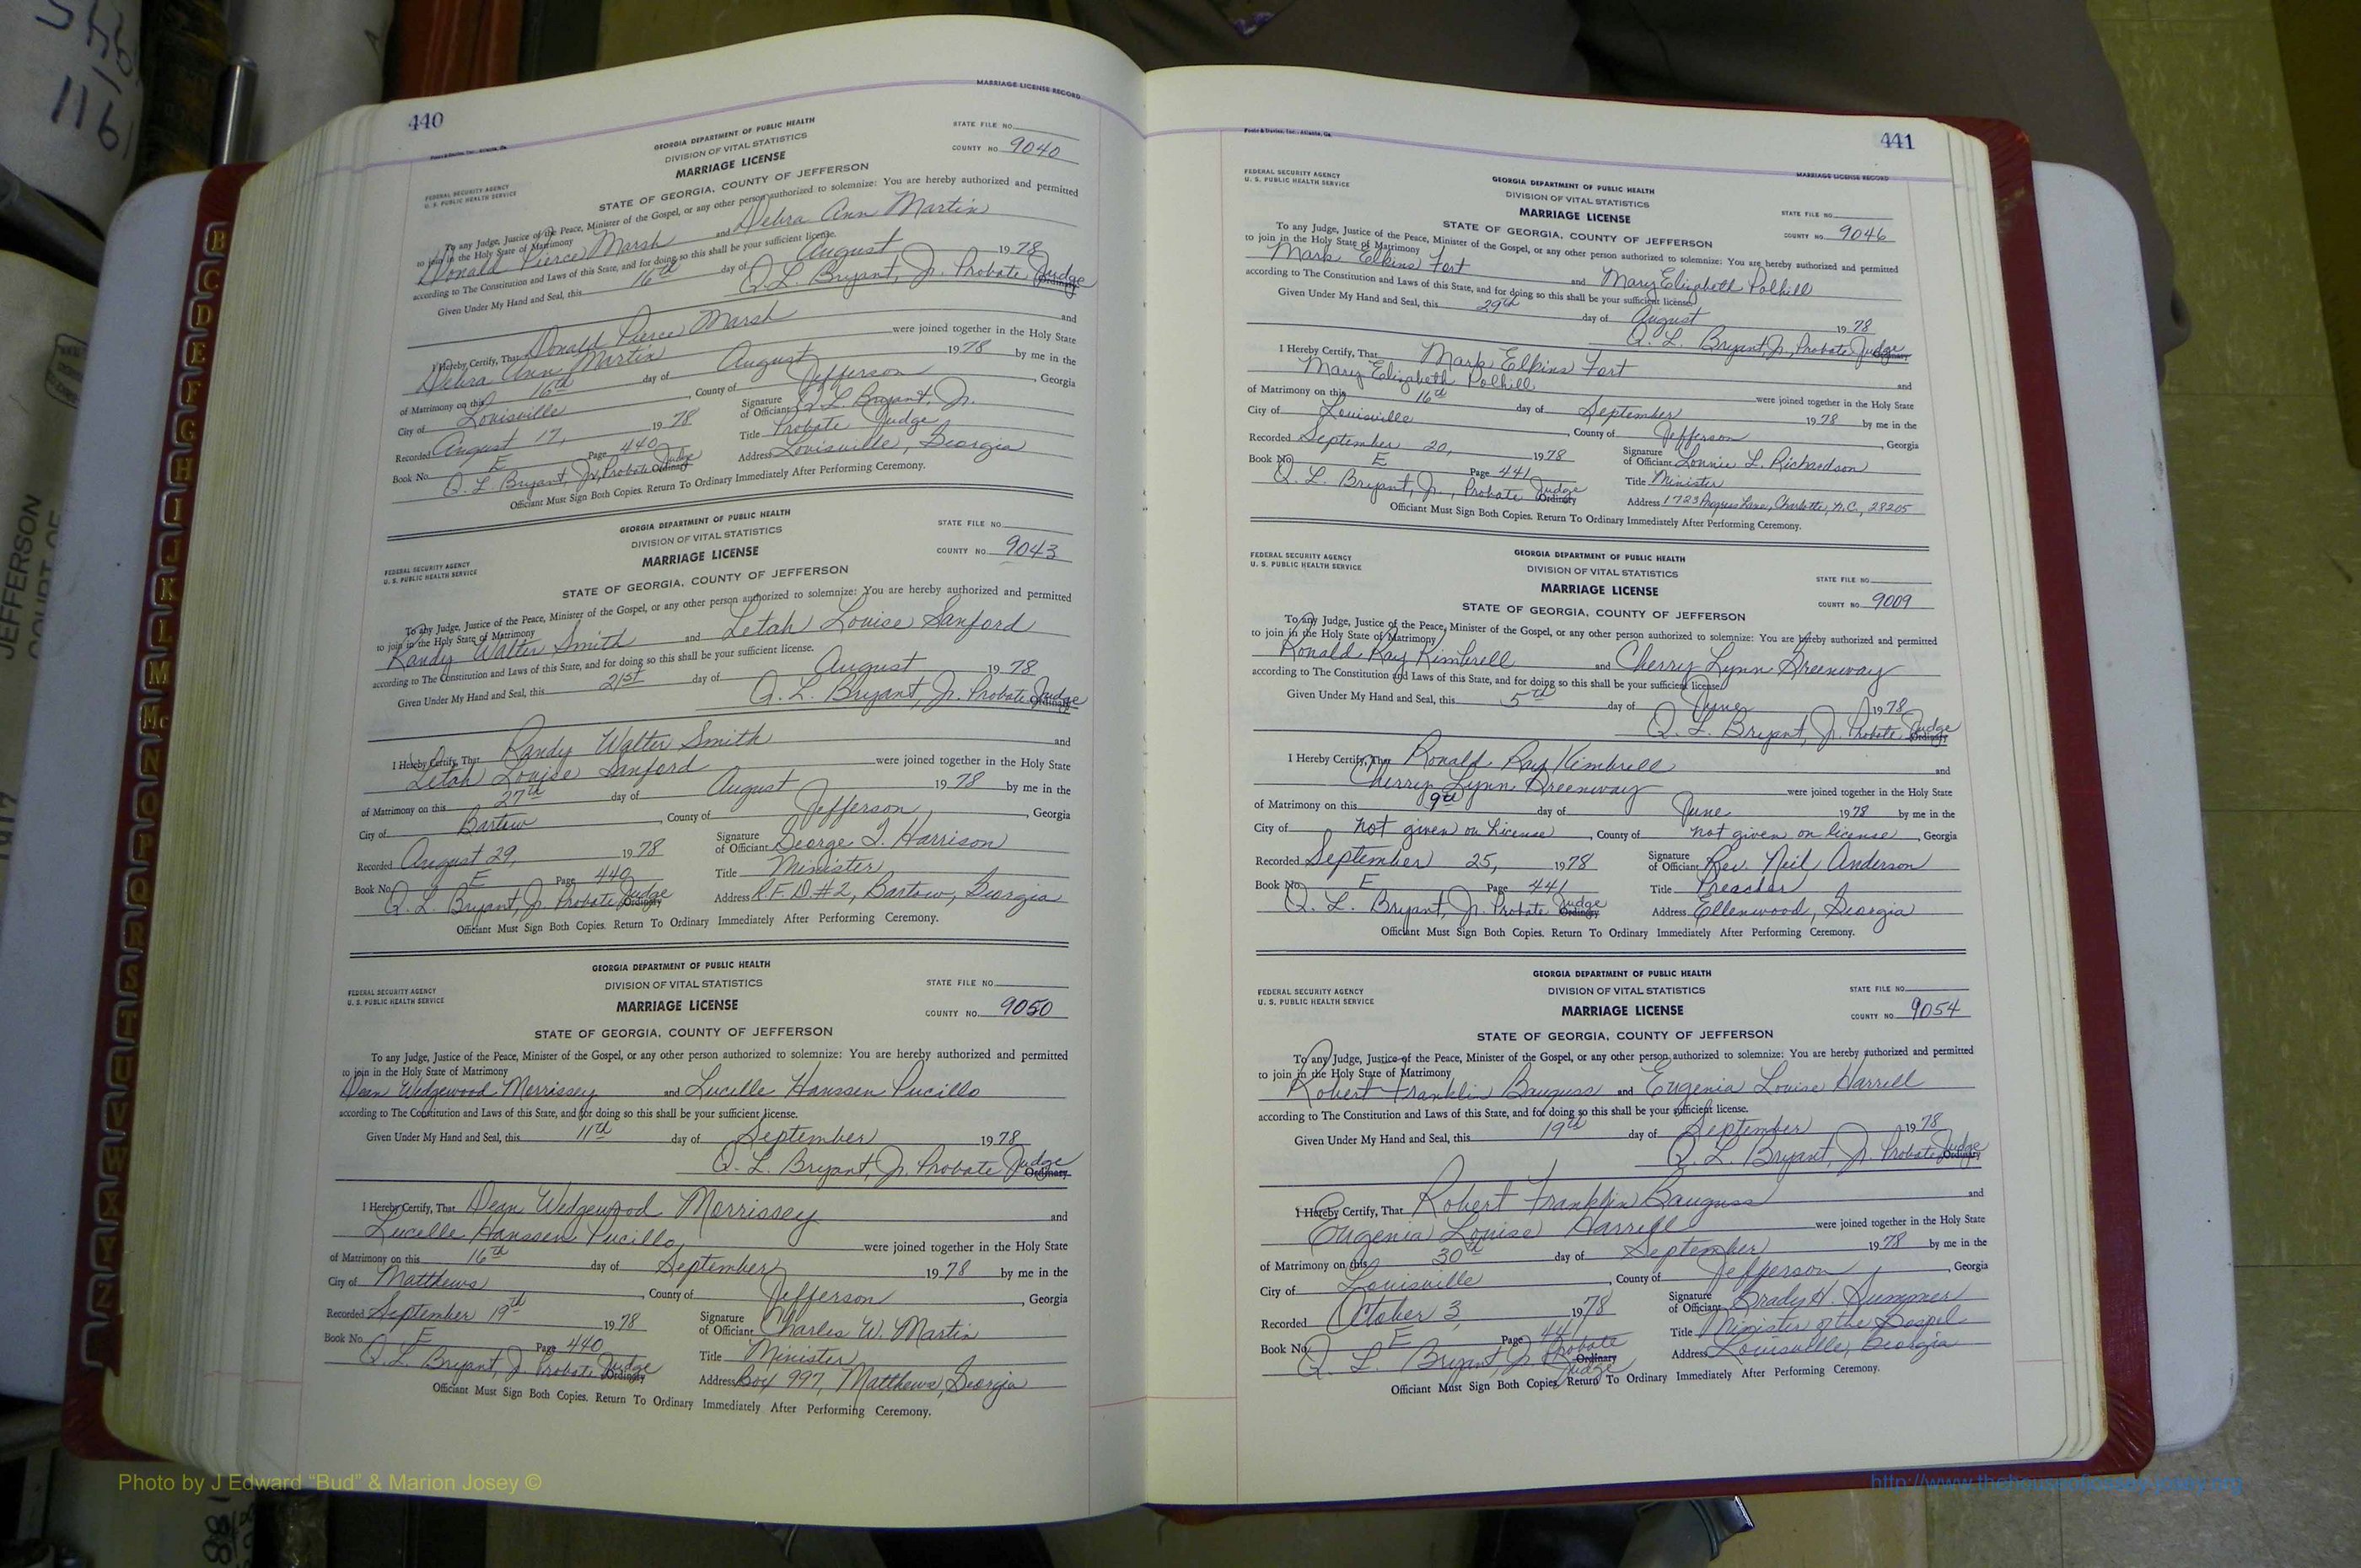 440
MARRIAGE LICENSE RECORD
Foote & Davies, Inc., Atlanta, Ga.
GEORGIA DEPARTMENT OF PUBLIC HEALTH
DIVISION OF VITAL STATISTICS
MARRIAGE LICENSE
STATE OF GEORGIA, COUNTY OF JEFFERSON
FEDERAL SECURITY AGENCY
U. S. PUBLIC HEALTH SERVICE
STATE FILE NO.
COUNTY NO. 9040
To any Judge, Justice of the Peace, Minister of the Gospel, or any other person authorized to solemnize: You are hereby authorized and permitted
to join in the Holy State of Matrimony
Donald Pierce Marsh and Debra Ann Martin
according to The Constitution and Laws of this State, and for doing so this shall be your sufficient license.
Given Under My Hand and Seal, this 16th day of August 1978
Q. L. Bryant, Jr. Probate Judge Ordinary
I Hereby Certify, That Donald Pierce Marsh and
Debra Ann Martin were joined together in the Holy State
of Matrimony on this 16th day of August 1978 by me in the
City of Louisville, County of Jefferson, Georgia
Recorded August 17, 1978
Signature of Officiant Q L Bryant, Jr.
Book No. E Page 440
Title Probate Judge
Q. L. Bryant, Jr, Probate Judge Ordinary
Address Louisville, Georgia
Officiant Must Sign Both Copies. Return To Ordinary Immediately After Performing Ceremony.
GEORGIA DEPARTMENT OF PUBLIC HEALTH
DIVISION OF VITAL STATISTICS
MARRIAGE LICENSE
STATE OF GEORGIA, COUNTY OF JEFFERSON
FEDERAL SECURITY AGENCY
U. S. PUBLIC HEALTH SERVICE
STATE FILE NO.
COUNTY NO. 9043
To any Judge, Justice of the Peace, Minister of the Gospel, or any other person authorized to solemnize: You are hereby authorized and permitted
to join in the Holy State of Matrimony
Randy Walter Smith and Letah Louise Sanford
according to The Constitution and Laws of this State, and for doing so this shall be your sufficient license.
Given Under My Hand and Seal, this 21st day of August 1978
Q. L. Bryant, Jr. Probate Judge Ordinary
I Hereby Certify, That Randy Walter Smith and
Letah Louise Sanford were joined together in the Holy State
of Matrimony on this 27th day of August 1978 by me in the
City of Bartow, County of Jefferson, Georgia
Recorded August 29, 1978
Signature of Officiant George T. Harrison
Book No. E Page 440
Title Minister
Q. L. Bryant, Jr. Probate Judge Ordinary
Address R.F.D. #2, Bartow, Georgia
Officiant Must Sign Both Copies. Return To Ordinary Immediately After Performing Ceremony.
GEORGIA DEPARTMENT OF PUBLIC HEALTH
DIVISION OF VITAL STATISTICS
MARRIAGE LICENSE
STATE OF GEORGIA, COUNTY OF JEFFERSON
FEDERAL SECURITY AGENCY
U. S. PUBLIC HEALTH SERVICE
STATE FILE NO.
COUNTY NO. 9050
To any Judge, Justice of the Peace, Minister of the Gospel, or any other person authorized to solemnize: You are hereby authorized and permitted
to join in the Holy State of Matrimony
Dean Wedgewood Morrissey and Lucille Hanssen Pucillo
according to The Constitution and Laws of this State, and for doing so this shall be your sufficient license.
Given Under My Hand and Seal, this 11th day of September 1978
Q. L. Bryant, Jr. Probate Judge Ordinary
I Hereby Certify, That Dean Wedgewood Morrissey and
Lucille Hanssen Pucillo were joined together in the Holy State
of Matrimony on this 16th day of September 1978 by me in the
City of Matthews, County of Jefferson, Georgia
Recorded September 19th 1978
Signature of Officiant Charles W. Martin
Book No. E Page 440
Title Minister
Q. L. Bryant, Jr. Probate Judge Ordinary
Address Box 997, Matthews, Georgia
Officiant Must Sign Both Copies. Return To Ordinary Immediately After Performing Ceremony.
441
Foote & Davies, Inc., Atlanta, Ga.
MARRIAGE LICENSE RECORD
FEDERAL SECURITY AGENCY
U. S. PUBLIC HEALTH SERVICE
GEORGIA DEPARTMENT OF PUBLIC HEALTH
DIVISION OF VITAL STATISTICS
MARRIAGE LICENSE
STATE OF GEORGIA, COUNTY OF JEFFERSON
STATE FILE NO.
COUNTY NO. 9046
To any Judge, Justice of the Peace, Minister of the Gospel, or any other person authorized to solemnize: You are hereby authorized and permitted
to join in the Holy State of Matrimony
Mark Elkins Fort and Mary Elizabeth Polhill
according to The Constitution and Laws of this State, and for doing so this shall be your sufficient license.
Given Under My Hand and Seal, this 29th day of August 1978
Q. L. Bryant, Jr., Probate Judge Ordinary
I Hereby Certify, That Mark Elkins Fort and
Mary Elizabeth Polhill were joined together in the Holy State
of Matrimony on this 16th day of September 1978 by me in the
City of Louisville, County of Jefferson, Georgia
Recorded September 20, 1978
Signature of Officiant Lonnie L. Richardson
Book No. E Page 441
Title Minister
Q. L. Bryant, Jr., Probate Judge Ordinary
Address 1723 Lane, Charlotte, N.C., 28205
Officiant Must Sign Both Copies. Return To Ordinary Immediately After Performing Ceremony.
FEDERAL SECURITY AGENCY
U. S. PUBLIC HEALTH SERVICE
GEORGIA DEPARTMENT OF PUBLIC HEALTH
DIVISION OF VITAL STATISTICS
MARRIAGE LICENSE
STATE OF GEORGIA, COUNTY OF JEFFERSON
STATE FILE NO.
COUNTY NO. 9009
To any Judge, Justice of the Peace, Minister of the Gospel, or any other person authorized to solemnize: You are hereby authorized and permitted
to join in the Holy State of Matrimony
Ronald Ray Kimbrell and Cherry Lynn Greenway
according to The Constitution and Laws of this State, and for doing so this shall be your sufficient license.
Given Under My Hand and Seal, this 5th day of June 1978
Q. L. Bryant, Jr. Probate Judge Ordinary
I Hereby Certify, That Ronald Ray Kimbrell and
Cherry Lynn Greenway were joined together in the Holy State
of Matrimony on this 9th day of June 1978 by me in the
City of not given on License, County of not given on license, Georgia
Recorded September 25, 1978
Signature of Officiant Rev. Neil Anderson
Book No. E Page 441
Title Preacher
Q. L. Bryant, Jr. Probate Judge Ordinary
Address Ellenwood, Georgia
Officiant Must Sign Both Copies. Return To Ordinary Immediately After Performing Ceremony.
FEDERAL SECURITY AGENCY
U. S. PUBLIC HEALTH SERVICE
GEORGIA DEPARTMENT OF PUBLIC HEALTH
DIVISION OF VITAL STATISTICS
MARRIAGE LICENSE
STATE OF GEORGIA, COUNTY OF JEFFERSON
STATE FILE NO.
COUNTY NO. 9054
To any Judge, Justice of the Peace, Minister of the Gospel, or any other person authorized to solemnize: You are hereby authorized and permitted
to join in the Holy State of Matrimony
Robert Franklin Bauguss and Eugenia Louise Harrell
according to The Constitution and Laws of this State, and for doing so this shall be your sufficient license.
Given Under My Hand and Seal, this 19th day of September 1978
Q. L. Bryant, Jr. Probate Judge Ordinary
I Hereby Certify, That Robert Franklin Bauguss and
Eugenia Louise Harrell were joined together in the Holy State
of Matrimony on this 30th day of September 1978 by me in the
City of Louisville, County of Jefferson, Georgia
Recorded October 3, 1978
Signature of Officiant Grady H. Summer
Book No. E Page 441
Title Minister of the Gospel
Q. L. Bryant, Jr. Probate Ordinary Judge
Address Louisville, Georgia
Officiant Must Sign Both Copies. Return To Ordinary Immediately After Performing Ceremony.
B
C
D
E
F
G
H
I
J
K
L
M
Mc
N
O
P
Q
R
S
T
U
V
W
X
Y
Z
JEFFERSON
COURT OF
1161
Photo by J Edward “Bud” & Marion Josey ©